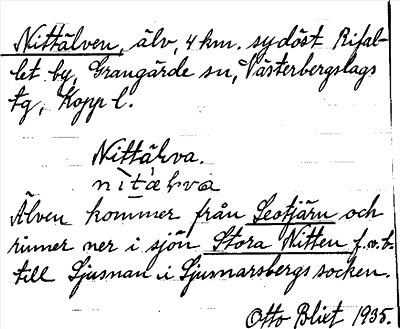 Nittälven, älv, 4 km. sydöst Rifal-
let by, Grangärde sn, Västerbergslags
tg, Kopp l.
Nittähva.
nìtæ̀hva
Älven kommer från Leotjärn och
rinner ner i sjön Stora Nitten f.v.b.
till Ljusnan i Ljusnarsbergs socken.
Otto Blixt 1935.